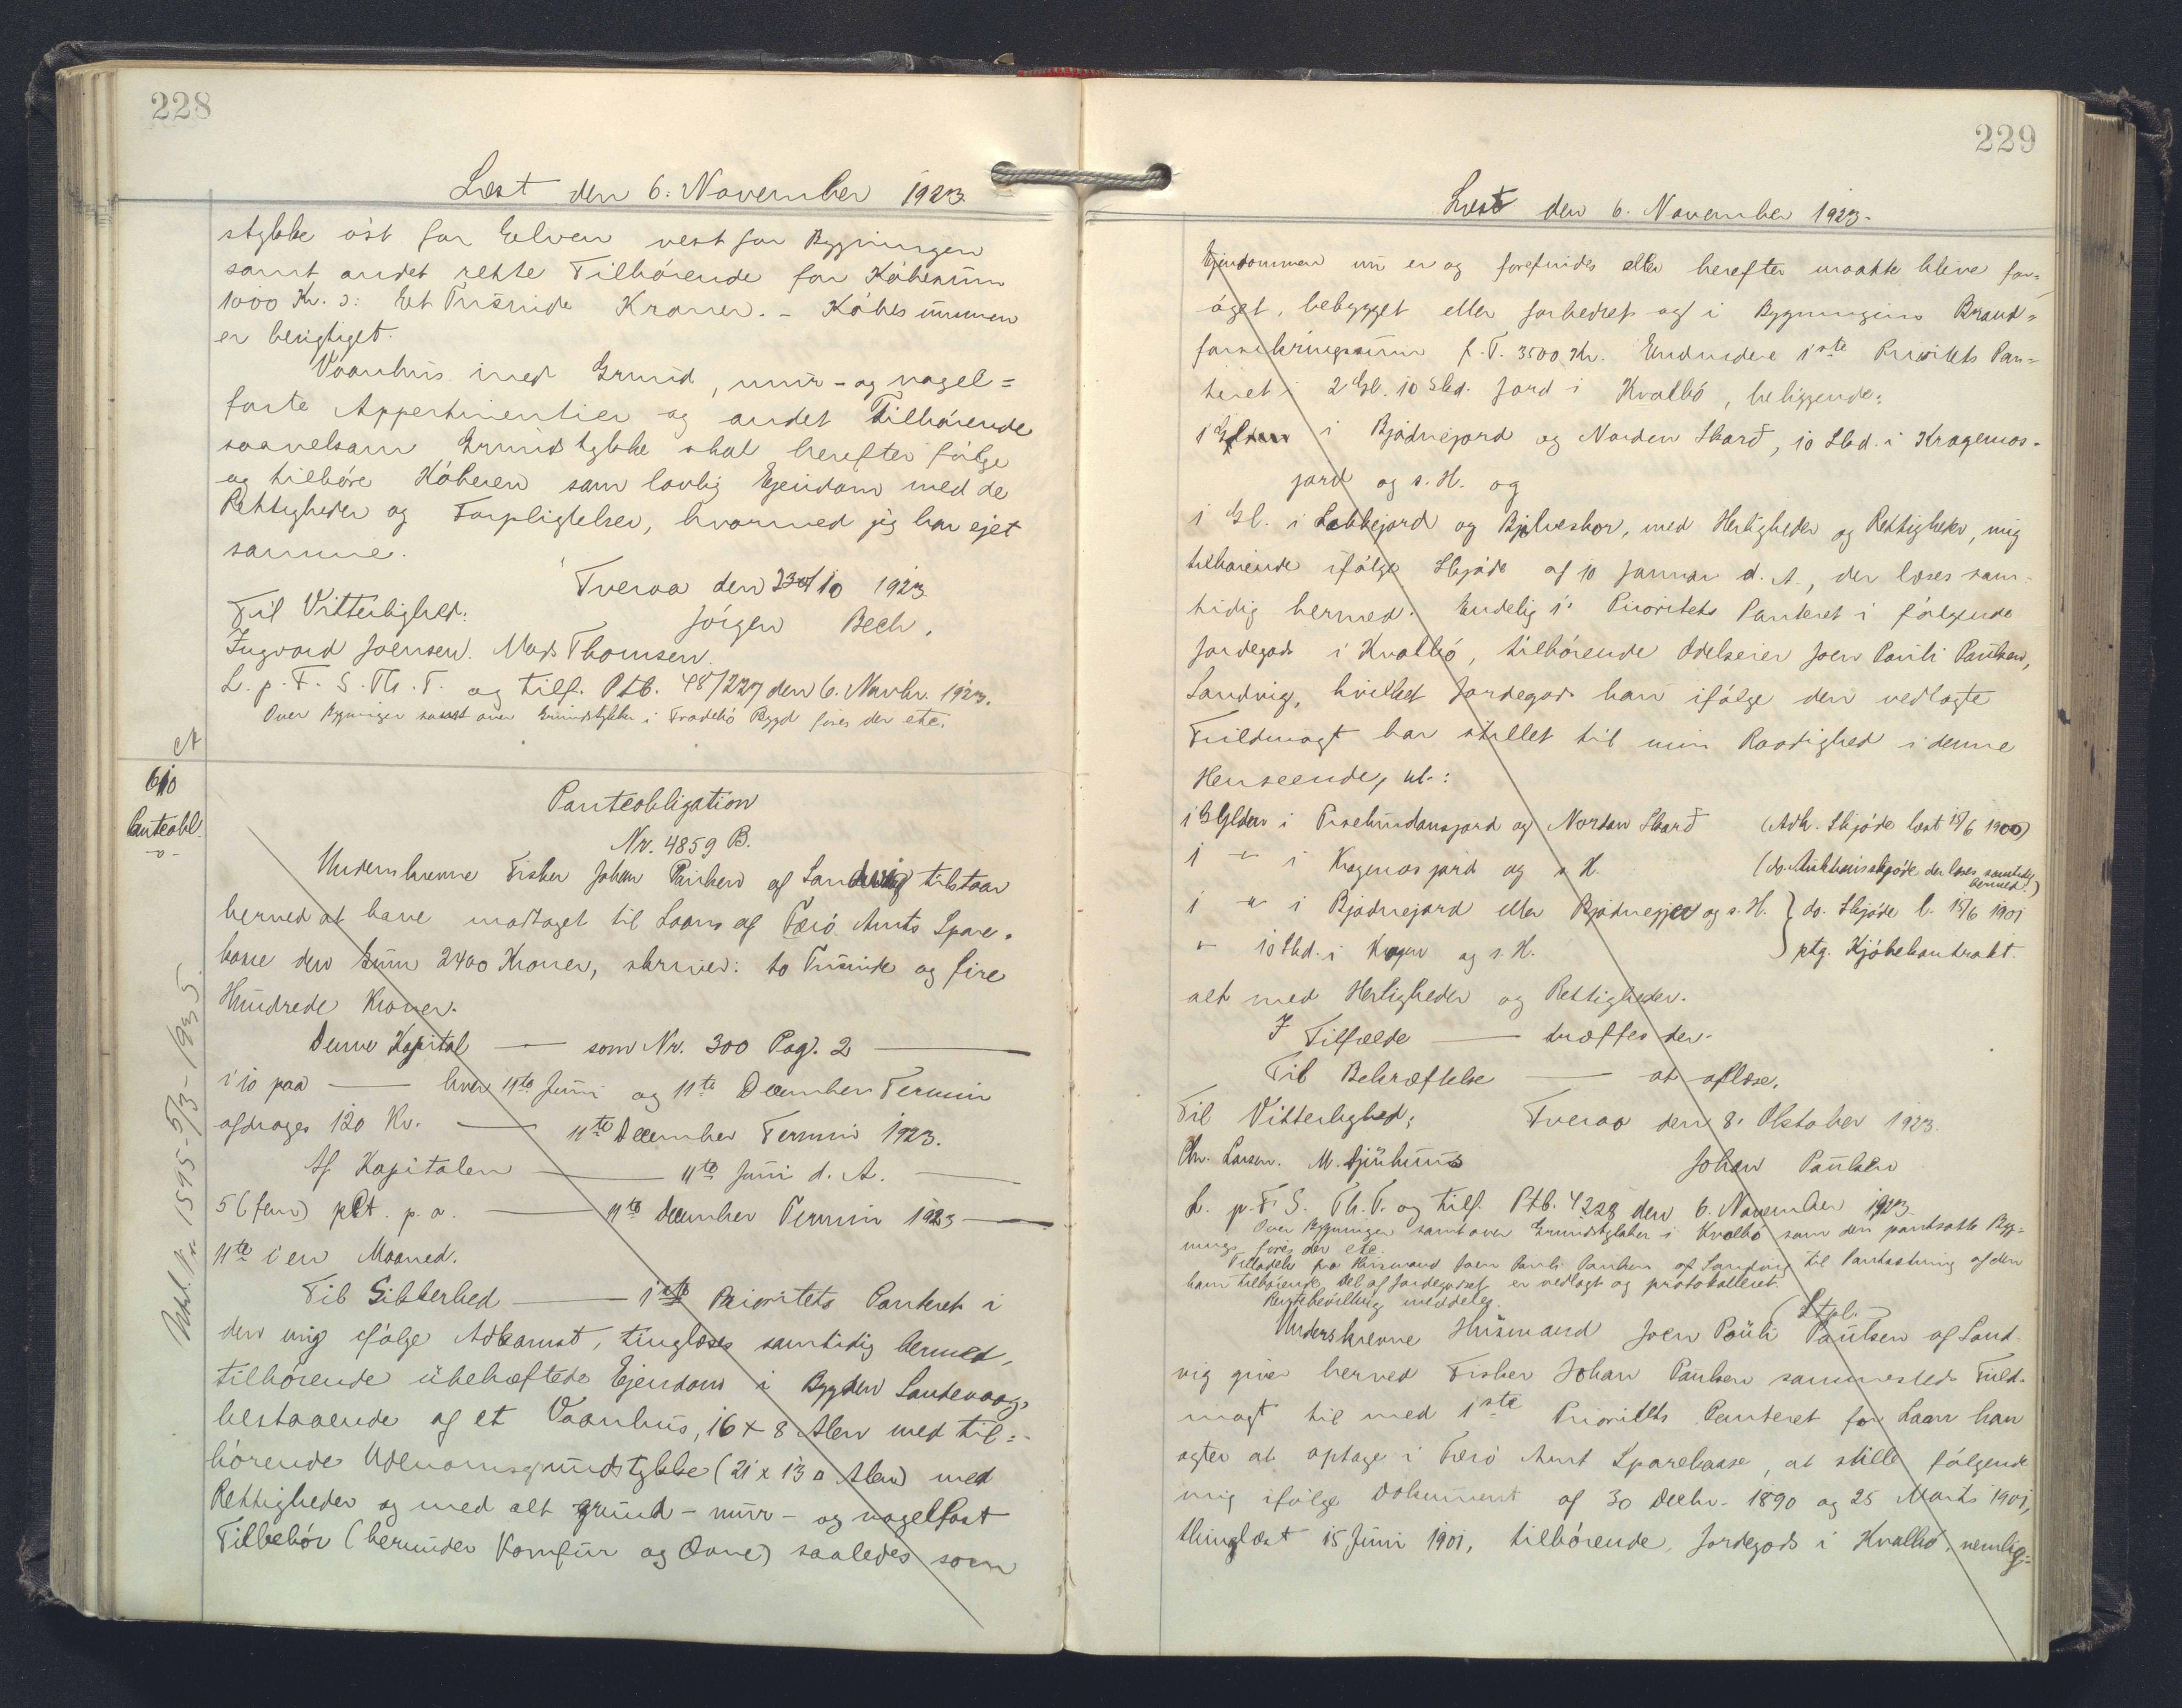 228
Læst den 6. November 1923.
stykke öst for Elven vest for Bygningen
samt andet rette Tilhörende for Köbesum
1000 Kr. ɔ: Et Tusinde Kroner. - Köbesummen
er berigtiget.
Vaanhus med Grund, mur- og nagel=
faste Appertinentier og andet Tilhörende
saavelsom Grundstykke skal herefter fölge
og tilhöre Köberen som lovlig Ejendom med de
Rettigheder og Forpligtelser, hvormed jeg har ejet
samme.
Tveraa den 23/10 1923.
Til Vitterlighed: Jörgen Bech.
Ingvard Joensen. Mads Thomsen.
L. p. F. S. Th. T. og tilf. Ptb. 48/227 den 6. Novbr. 1923.
Over Bygninger samt over Grundstykker i Frodebö Bygd föres der etc.
et
610
Panteobl.
-o-
Udsl. Nr. 1595-5/3-1935.
Panteobligation
Nr. 4859 B.
Underskrevne Fisker Johan Paulsen af Sandvig tilstaar
herved at have modtaget til Laans af Færö Amts Spare=
kasse den Sum 2400 Kroner, skriver: to Tusinde og fire
Hundrede Kroner.
Denne Kapital — som Nr. 300 Pag. 2 —
i 10 paa — hver 11te Juni og 11te December Termin
afdrages 120 Kr. — 11te December Termin 1923.
Af Kapitalen — 11te Juni d. A. —
5 (fem) pCt. p. a. — 11te December Termin 1923 —
11te i en Maaned.
Til Sikkerhed — 1ste Prioritets Panteret i
den mig ifölge Adkomst, tinglæses samtidig hermed,
tilhörende übehæftede Ejendom i Bygden Sandevaag,
bestaaende af et Vaanhus, 16 x 8 Alen med til=
hörende Udenomsgrundstykke (21 x 13 a Alen) med
Rettigheder og med alt grund- mur- og nagelfast
Tilbehör (herunder Komfur og Ovne) saaledes som
229
Læst den 6. November 1923.
Ejendommen nu er og forefindes eller herefter maatte blive for=
öget, bebygget eller forbedret og i Bygningens Brand=
forsikringssum f. T. 3500 Kr. Endvidere 1ste Prioritets Pan=
teret i 2 Gl. 10 Skd. Jord i Kvalbö, beliggende:
1 Gylden i Bjadnejord og Norden Skarð, 10 Skd. i Kragemos-
jord og s. H. og
1 Gl. i Labbejord og Bjelveskor, med Herligheder og Rettigheder, mig
tilhörende ifölge Skjöde af 10 Januar d. A., der læses sam=
tidig hermed. Endelig 1' Prioritets Panteret i fölgende
Jordegods i Kvalbö, tilhörende Odelseier Joen Pauli Paulsen,
Sandvig, hvilket Jordegods han ifölge den vedlagte
Fuldmagt har stillet til min Raadighed i denne
Henseende, nl.:
1 Gylden i Priselundansjord og Nordan Skarð (Adk. Skjöde læst 15/6 1900)
1 -"- i Kragemosjord og s. H. (do. Auktionsskjöde der læses samtidig hermed.)
1 -"- i Bjadnejord eller Bjadnegjer og s. H. } do. Skjöde l. 15/6 1901
" 10 Skd. i Krogen og s. H. } ptg. Kjöbekontrakt.
alt med Herligheder og Rettigheder.
I Tilfælde — træffes der.
Til Bekræftelse — at aflæse.
Til Vitterlighed: Tveraa den 8. Oktober 1923.
Chr. Larsen. M. Djurhuus Johan Paulsen
L. p. F. S. Th. T. og tilf. Ptb. 4228 den 6. November 1923.
Over Bygninger samt over Grundstykker i Kvalbö som den pantsatte Byg=
nings föres der etc.
Tilladelse fra Husmand Joen Pauli Paulsen af Sandvig til Pantsætning af den
ham tilhörende Del af Jordegodset er vedlagt og protokolleret.
Rentebevilling meddeles.
(Stpl.)
Underskrevne Husmand Joen Pauli Paulsen af Sand-
vig giver herved Fisker Johan Paulsen sammesteds Fuld-
magt til med 1ste Prioritets Panteret for Laan han
agter at optage i Færö Amt Sparekasse, at stille fölgende
mig ifölge Dokument af 30 Decbr. 1890 og 25 Marts 1901,
thinglæst 15 Juni 1901, tilhörende Jordegods i Kvalbö, nemlig: